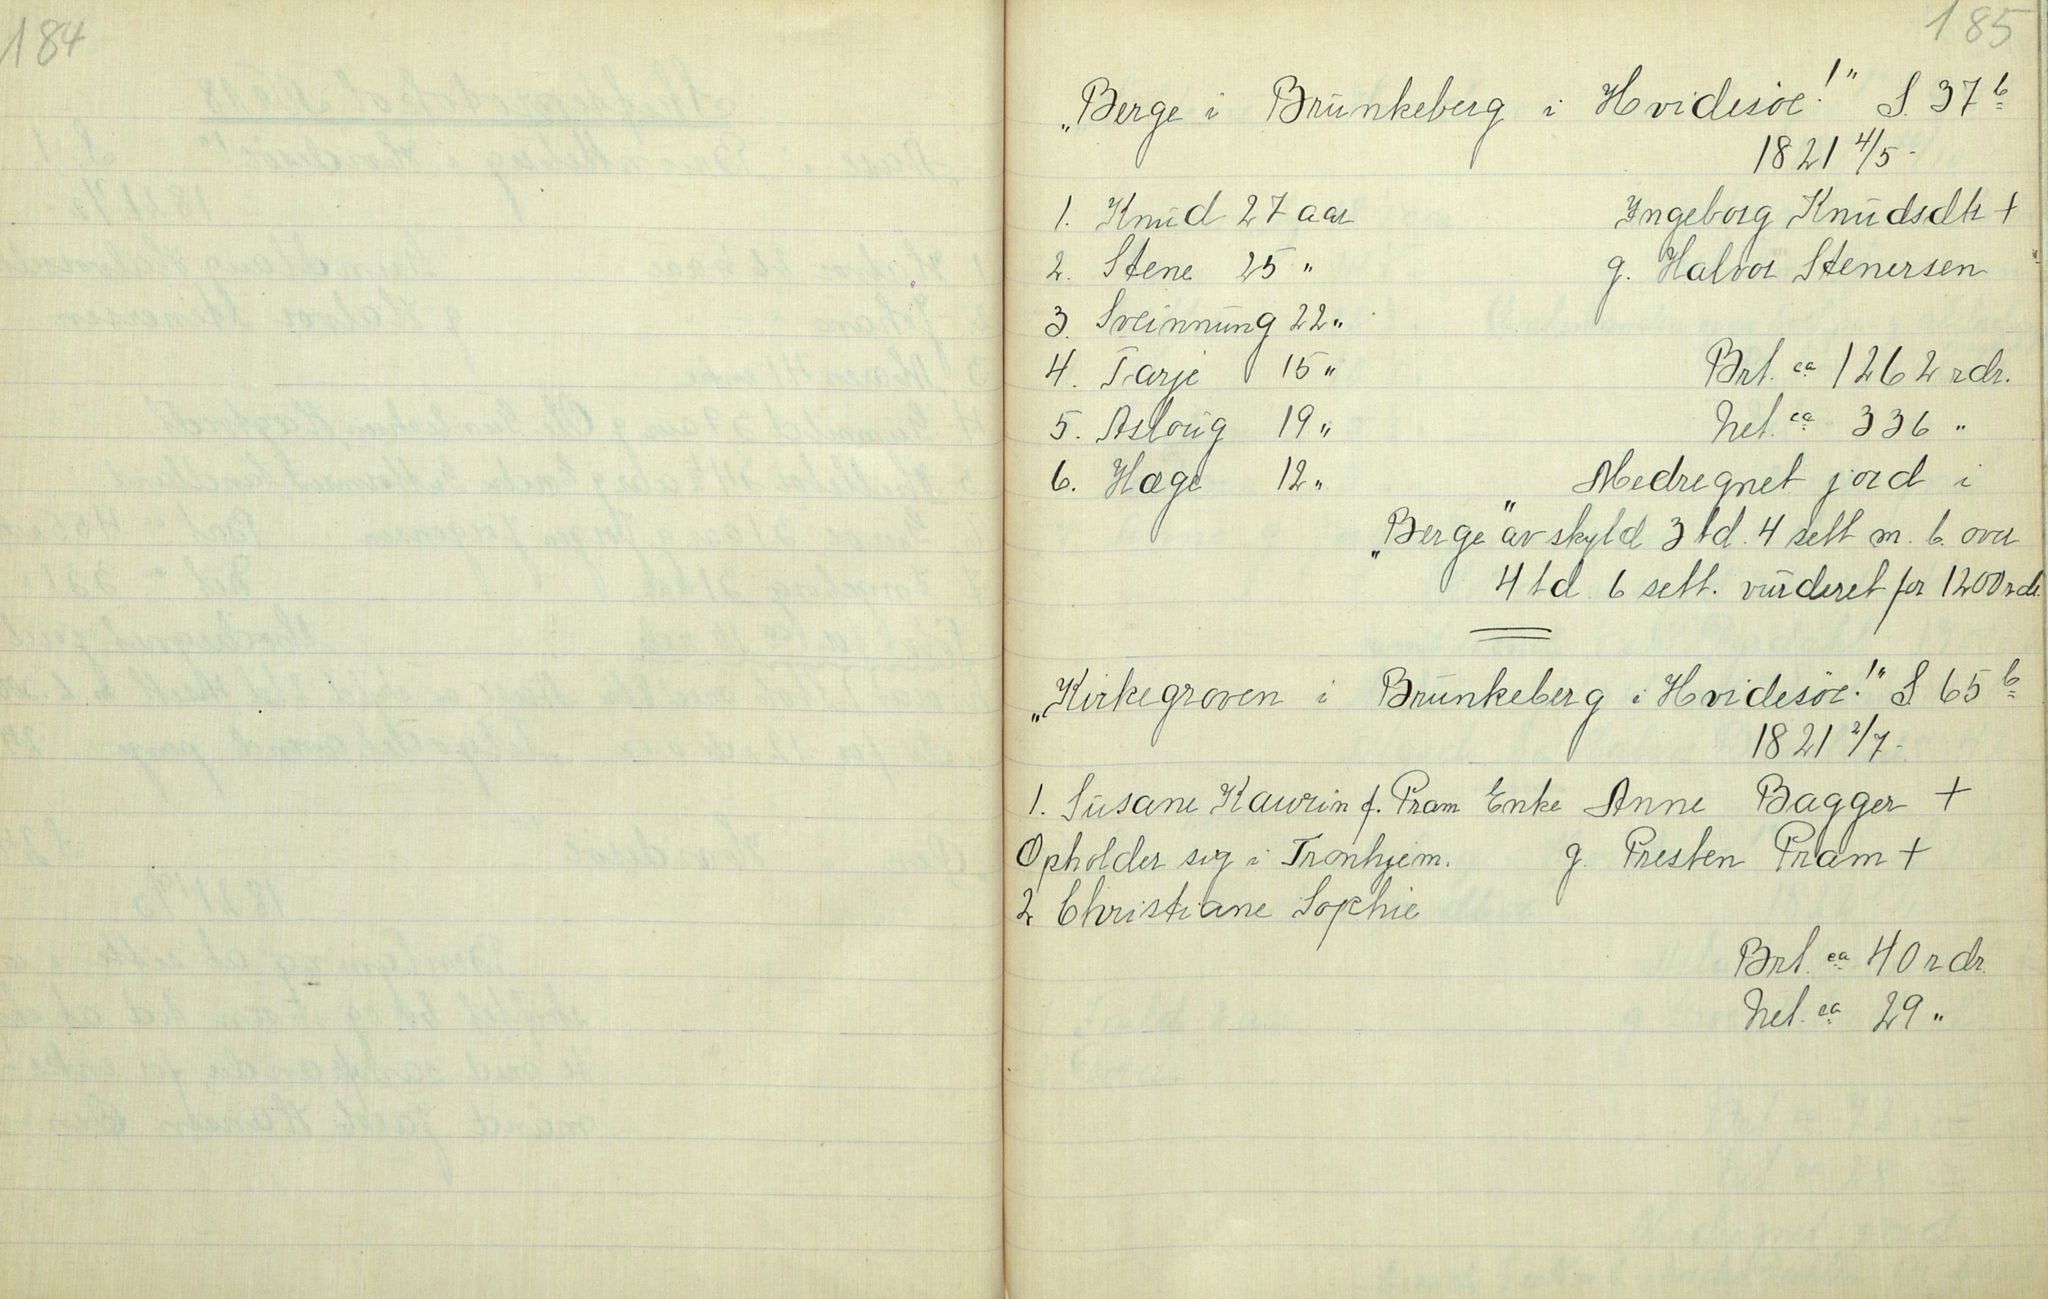 184
185
„Berge i Brunkeberg i Hvidesöe!" S. 37 b
1821 4/5.
1. Knud 27 aar Ingeborg Knudsdtr +
2. Stene 25 " g. Halvor Stenersen
3. Sveinnung 22 "
4. Tarje 15 " Brt. ca 1262 rdr.
5. Asloug 19 " Net. ca 336 "
6. Hæge 12 " Medregnet jord i
„Berge" av skyld 3 td. 4 sett m. b. over
4 td. 6 sett. vurderet for 1200 rdr.
„Kirkegroven i Brunkeberg i Hvidesöe!" S 65 b
1821 2/7.
1. Susane Kaurin f. Pram Enke Anne Bagger +
Opholder sig i Tronhjem. g. Presten Pram +
2 Christiane Sophie
Brt. ca 40 rdr.
Net. ca 29 "